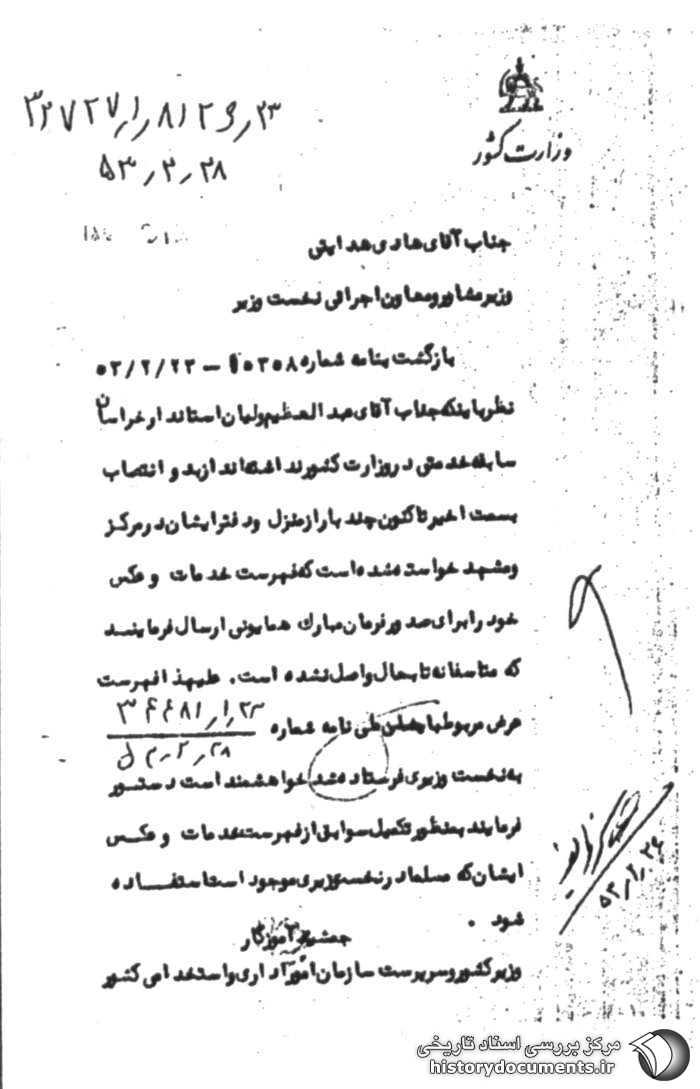 وزارت کشور
۵۳٫۲٫۲۸
جناب آقای هادی هدایتی
وزیر مشاور و معاون اجرائی نخست وزیر
بازگشت بنامه شماره ۱۰۳۰۸ – ۵۳/۲/۲۳
نظر باینکه جناب آقای عبدالعظیم ولیان استاندار خراسان
سابقه خدمتی در وزارت کشور نداشته اند از بدو انتصاب
بسمت اخیر تاکنون چند بار از منزل و دفتر ایشان در مرکز
و مشهد خواسته شده است که فهرست خدمات و عکس
خود را برای صدور فرمان مبارک همایونی ارسال فرمایند
که متاسفانه تا بحال واصل نشده است . علیهذا فهرست
عرض مربوط بایشان طی نامه شماره
به نخست وزیری فرستاده شد خواهشمند است دستور
فرمایند بمنظور تکمیل سوابق از فهرست خدمات و عکس
ایشان که مسلما در نخست وزیری موجود است استفاده
شود .
جمشید آموزگار
وزیر کشور و سرپرست سازمان امور اداری و استخدامی کشور
مرکز بررسی اسناد تاریخی
historydocuments.ir